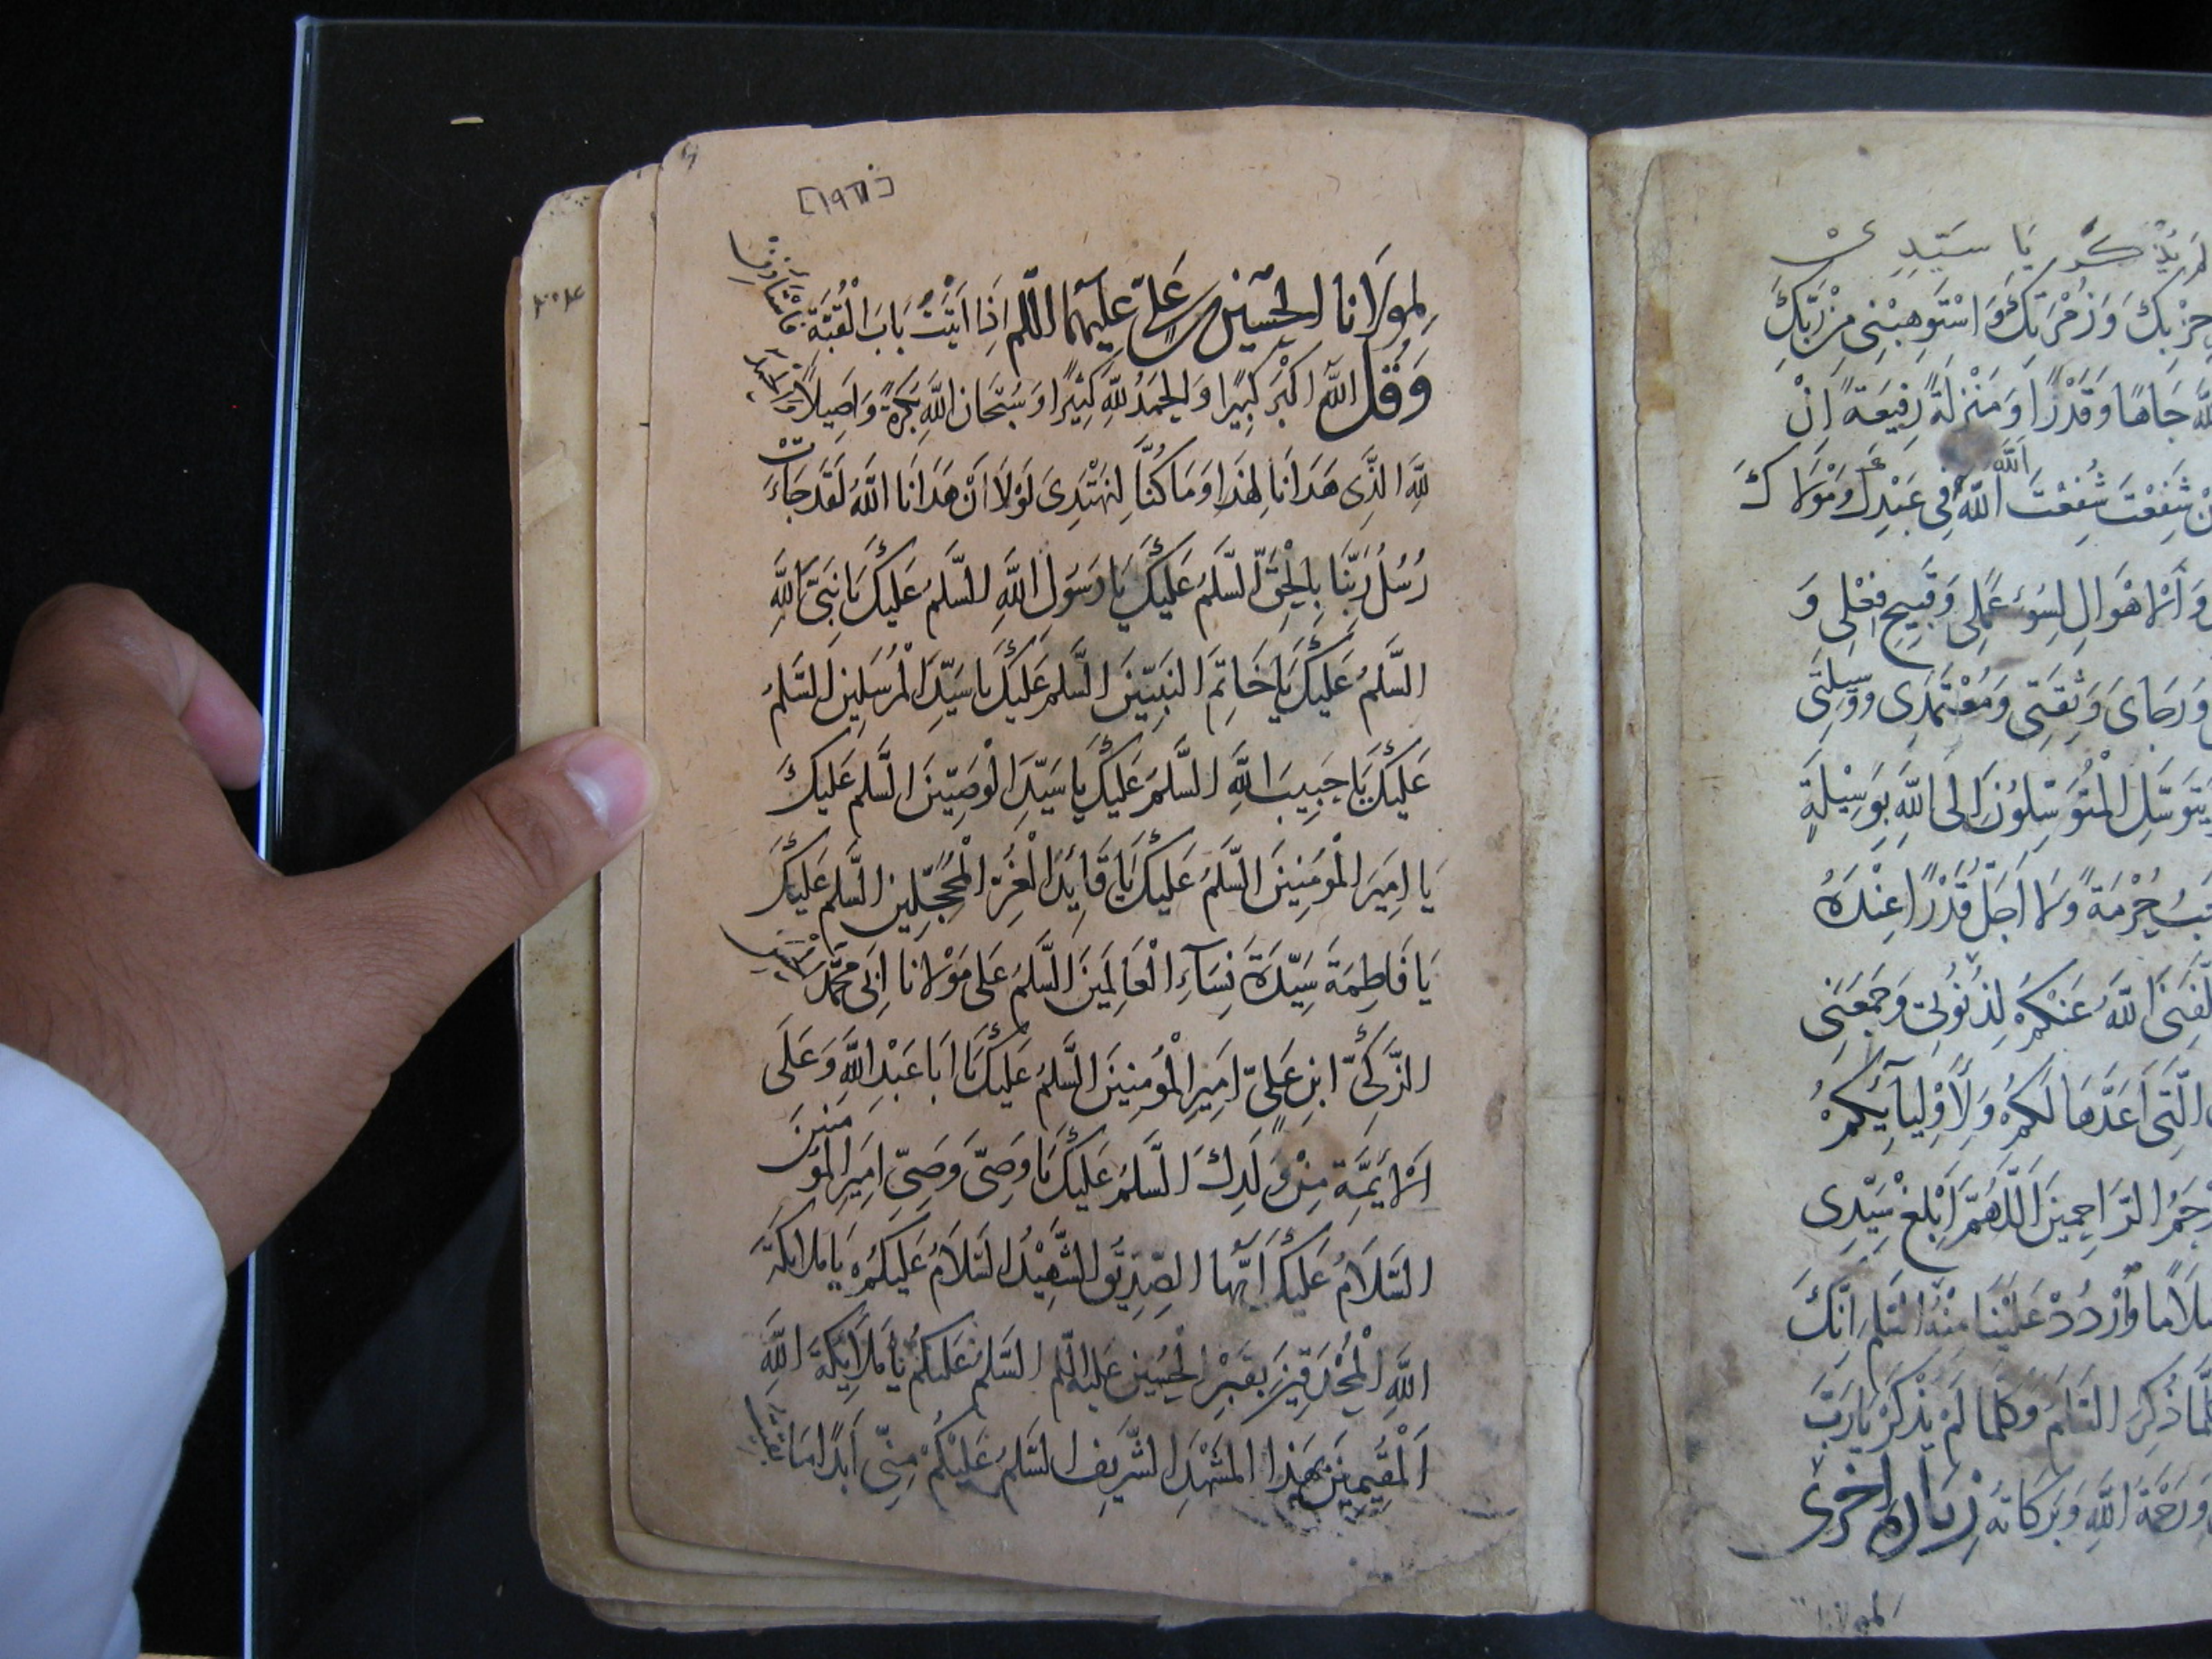 لم يذكر يا سيدي
حزبك وزمرتك واستوهبني من ربك
الله جاها وقدرا ومنزلة رفيعة ان
شفعت شفعت الله في عبدك ومولاك
الله
والاهوال لسوء عملي وقبيح فعلي و
ورجاي وثقتي ومعتمدي ووسيلتي
يتوسل المتوسلون الى الله بوسيلة
حرمة ولا اجل قدرا عنده
الله عنكم لذنوبي وجمعني
التي اعدها لكم ولاوليآيكم
الراحمين اللهم ابلغ سيدي
سلاما واردد علينا منه السلم انك
كلما ذكر السلام وكلما لم يذكر يا رب
ورحمة الله وبركاته زيارة اخرى
لمولانا
[١٩٦]
لمولانا الحسين بن علي عليهما السلم اذا اتيت باب القبة فاستاذن
وقل الله اكبر كبيرا والحمد لله كثيرا وسبحان الله بكرة واصيلا والحمد
لله الذي هدانا لهذا وما كنا لنهتدي لولا ان هدانا الله لقد جاءت
رسل ربنا بالحق السلم عليك يا رسول الله السلم عليك يا نبي الله
السلم عليك يا خاتم النبيين السلم عليك يا سيد المرسلين السلم
عليك يا حبيب الله السلم عليك يا سيد الوصيين السلم عليك
يا امير المؤمنين السلم عليك يا قايد الغر المحجلين السلم عليك
يا فاطمة سيدة نسآء العالمين السلم على مولانا ابي محمد الحسن
الزكي ابن علي امير المؤمنين السلم عليك يا ابا عبد الله وعلى
الايمة من ولدك السلم عليك يا وصي وصي امير المؤمنين
السلام عليك ايها الصديق الشهيد السلام عليكم يا ملائكة
الله المحدقين بقبر الحسين عليه السلم السلم عليكم يا ملايكة الله
المقيمين بهذا المشهد الشريف السلم عليكم مني ابدا ما بقيت